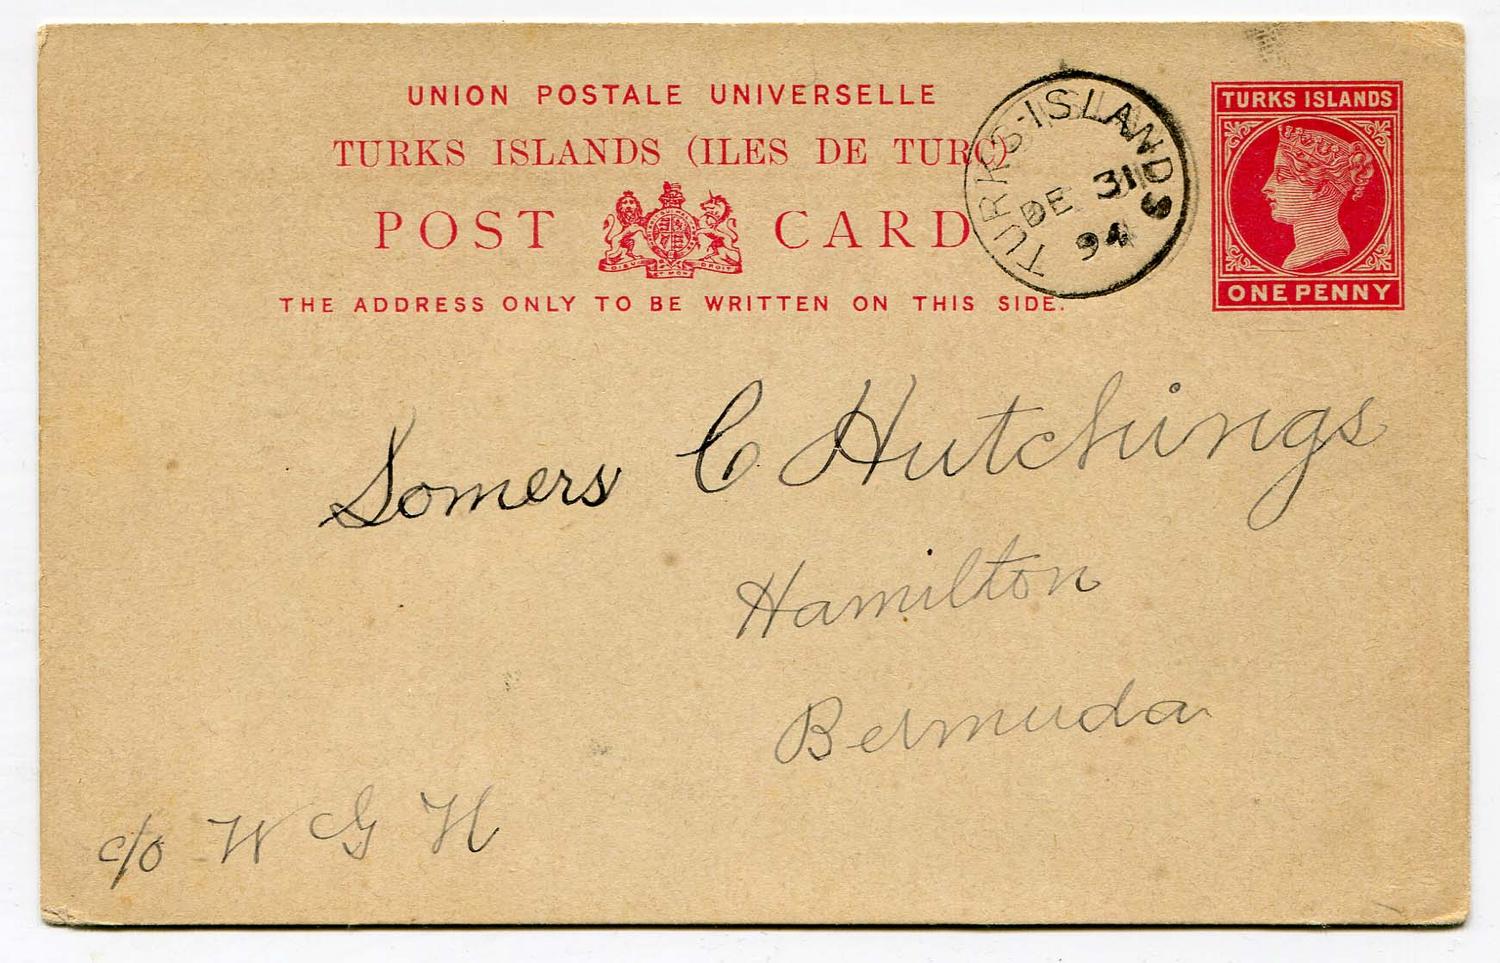 UNION POSTALE UNIVERSELLE
TURKS ISLANDS (ILES DE TURC)
POST CARD
DIEU ET MON DROIT
THE ADDRESS ONLY TO BE WRITTEN ON THIS SIDE.
TURKS-ISLANDS
DE 31
94
TURKS ISLANDS
ONE PENNY
Somers C Hutchings
Hamilton
Bermuda
c/o W G H